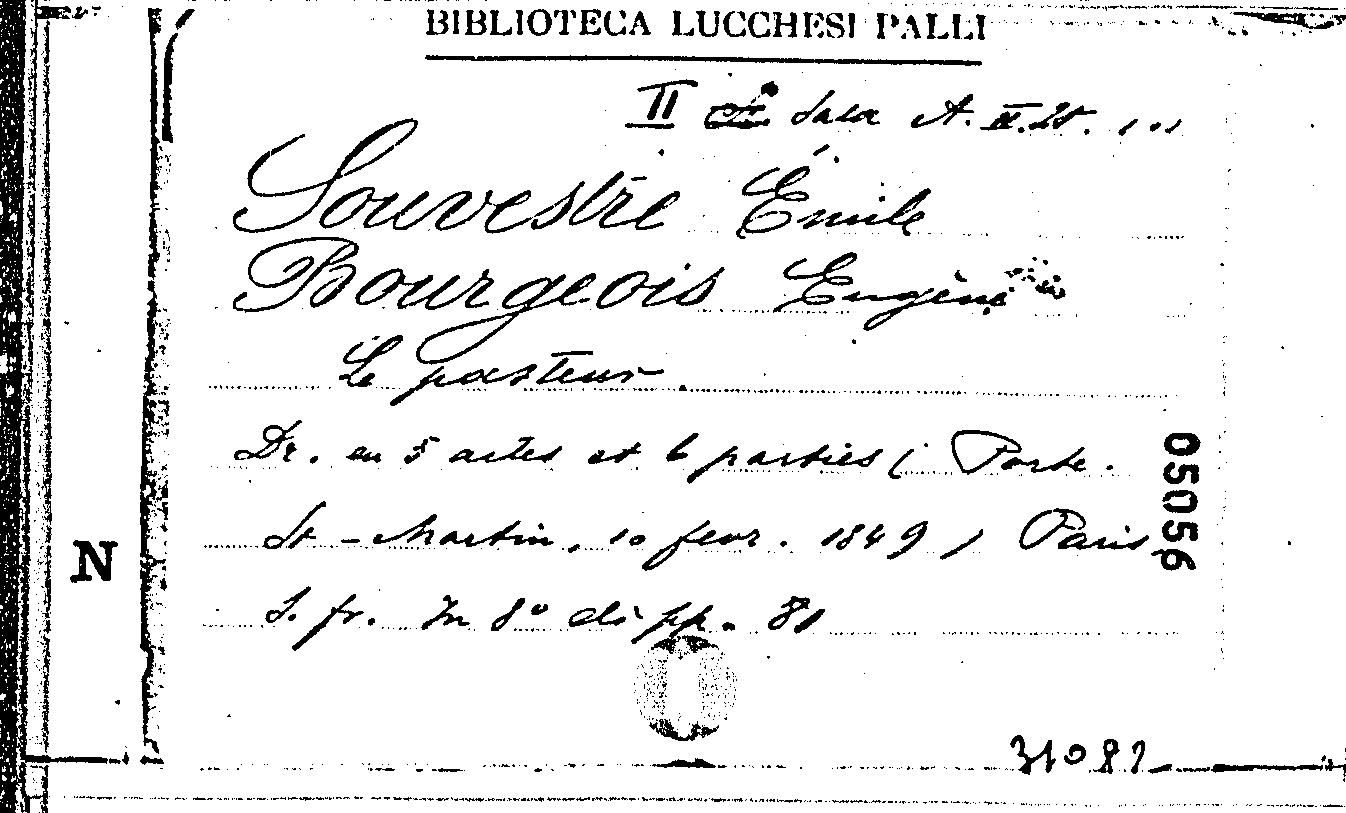 BIBLIOTECA LUCCHESI PALLI
II Sala A. II. 25.
Souvestre Émile
Bourgeois Eugène
Le pasteur
Dr. en 5 actes et 6 parties ( Porte.
St - Martin, 10 fevr. 1849 ) Paris
S. fr. In 8° di pp. 31
05056
N
31082